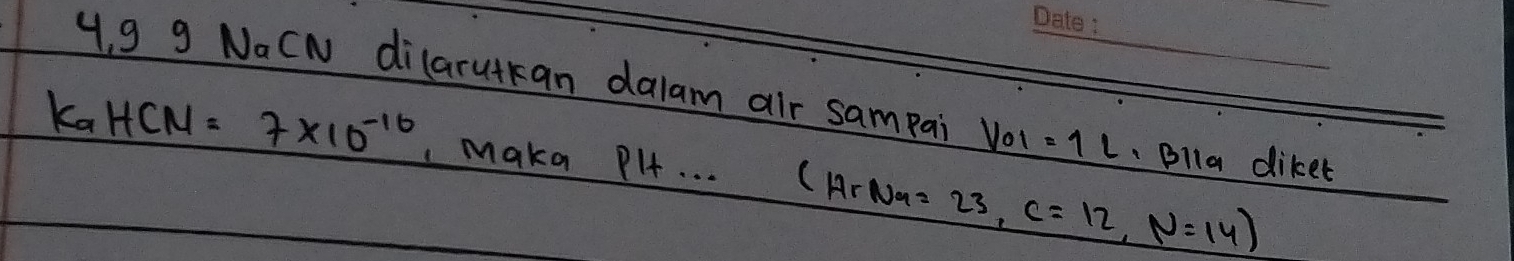 Date:
4,9 g NaCN dilarutkan dalam air sampai Vol = 1 L. Bila diket
Ka HCN = 7 × 10⁻¹⁰, maka PH... (Ar Na = 23, C = 12, N = 14)